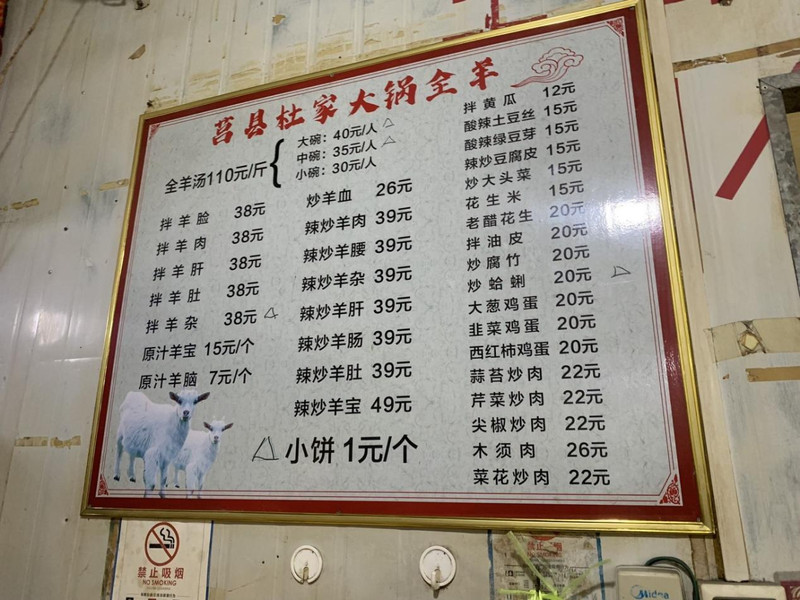 莒县杜家大锅全羊
全羊汤110元/斤
大碗：40元/人
中碗：35元/人
小碗：30元/人
拌羊脸 38元
拌羊肉 38元
拌羊肝 38元
拌羊肚 38元
拌羊杂 38元
原汁羊宝 15元/个
原汁羊脑 7元/个
炒羊血 26元
辣炒羊肉 39元
辣炒羊腰 39元
辣炒羊杂 39元
辣炒羊肝 39元
辣炒羊肠 39元
辣炒羊肚 39元
辣炒羊宝 49元
小饼 1元/个
拌黄瓜 12元
酸辣土豆丝 15元
酸辣绿豆芽 15元
辣炒豆腐皮 15元
炒大头菜 15元
花生米 15元
老醋花生 20元
拌油皮 20元
炒腐竹 20元
炒蛤蜊 20元
大葱鸡蛋 20元
韭菜鸡蛋 20元
西红柿鸡蛋 20元
蒜苔炒肉 22元
芹菜炒肉 22元
尖椒炒肉 22元
木须肉 26元
菜花炒肉 22元
禁止吸烟
NO SMOKING
禁止吸烟
NO SMOKING
Midea